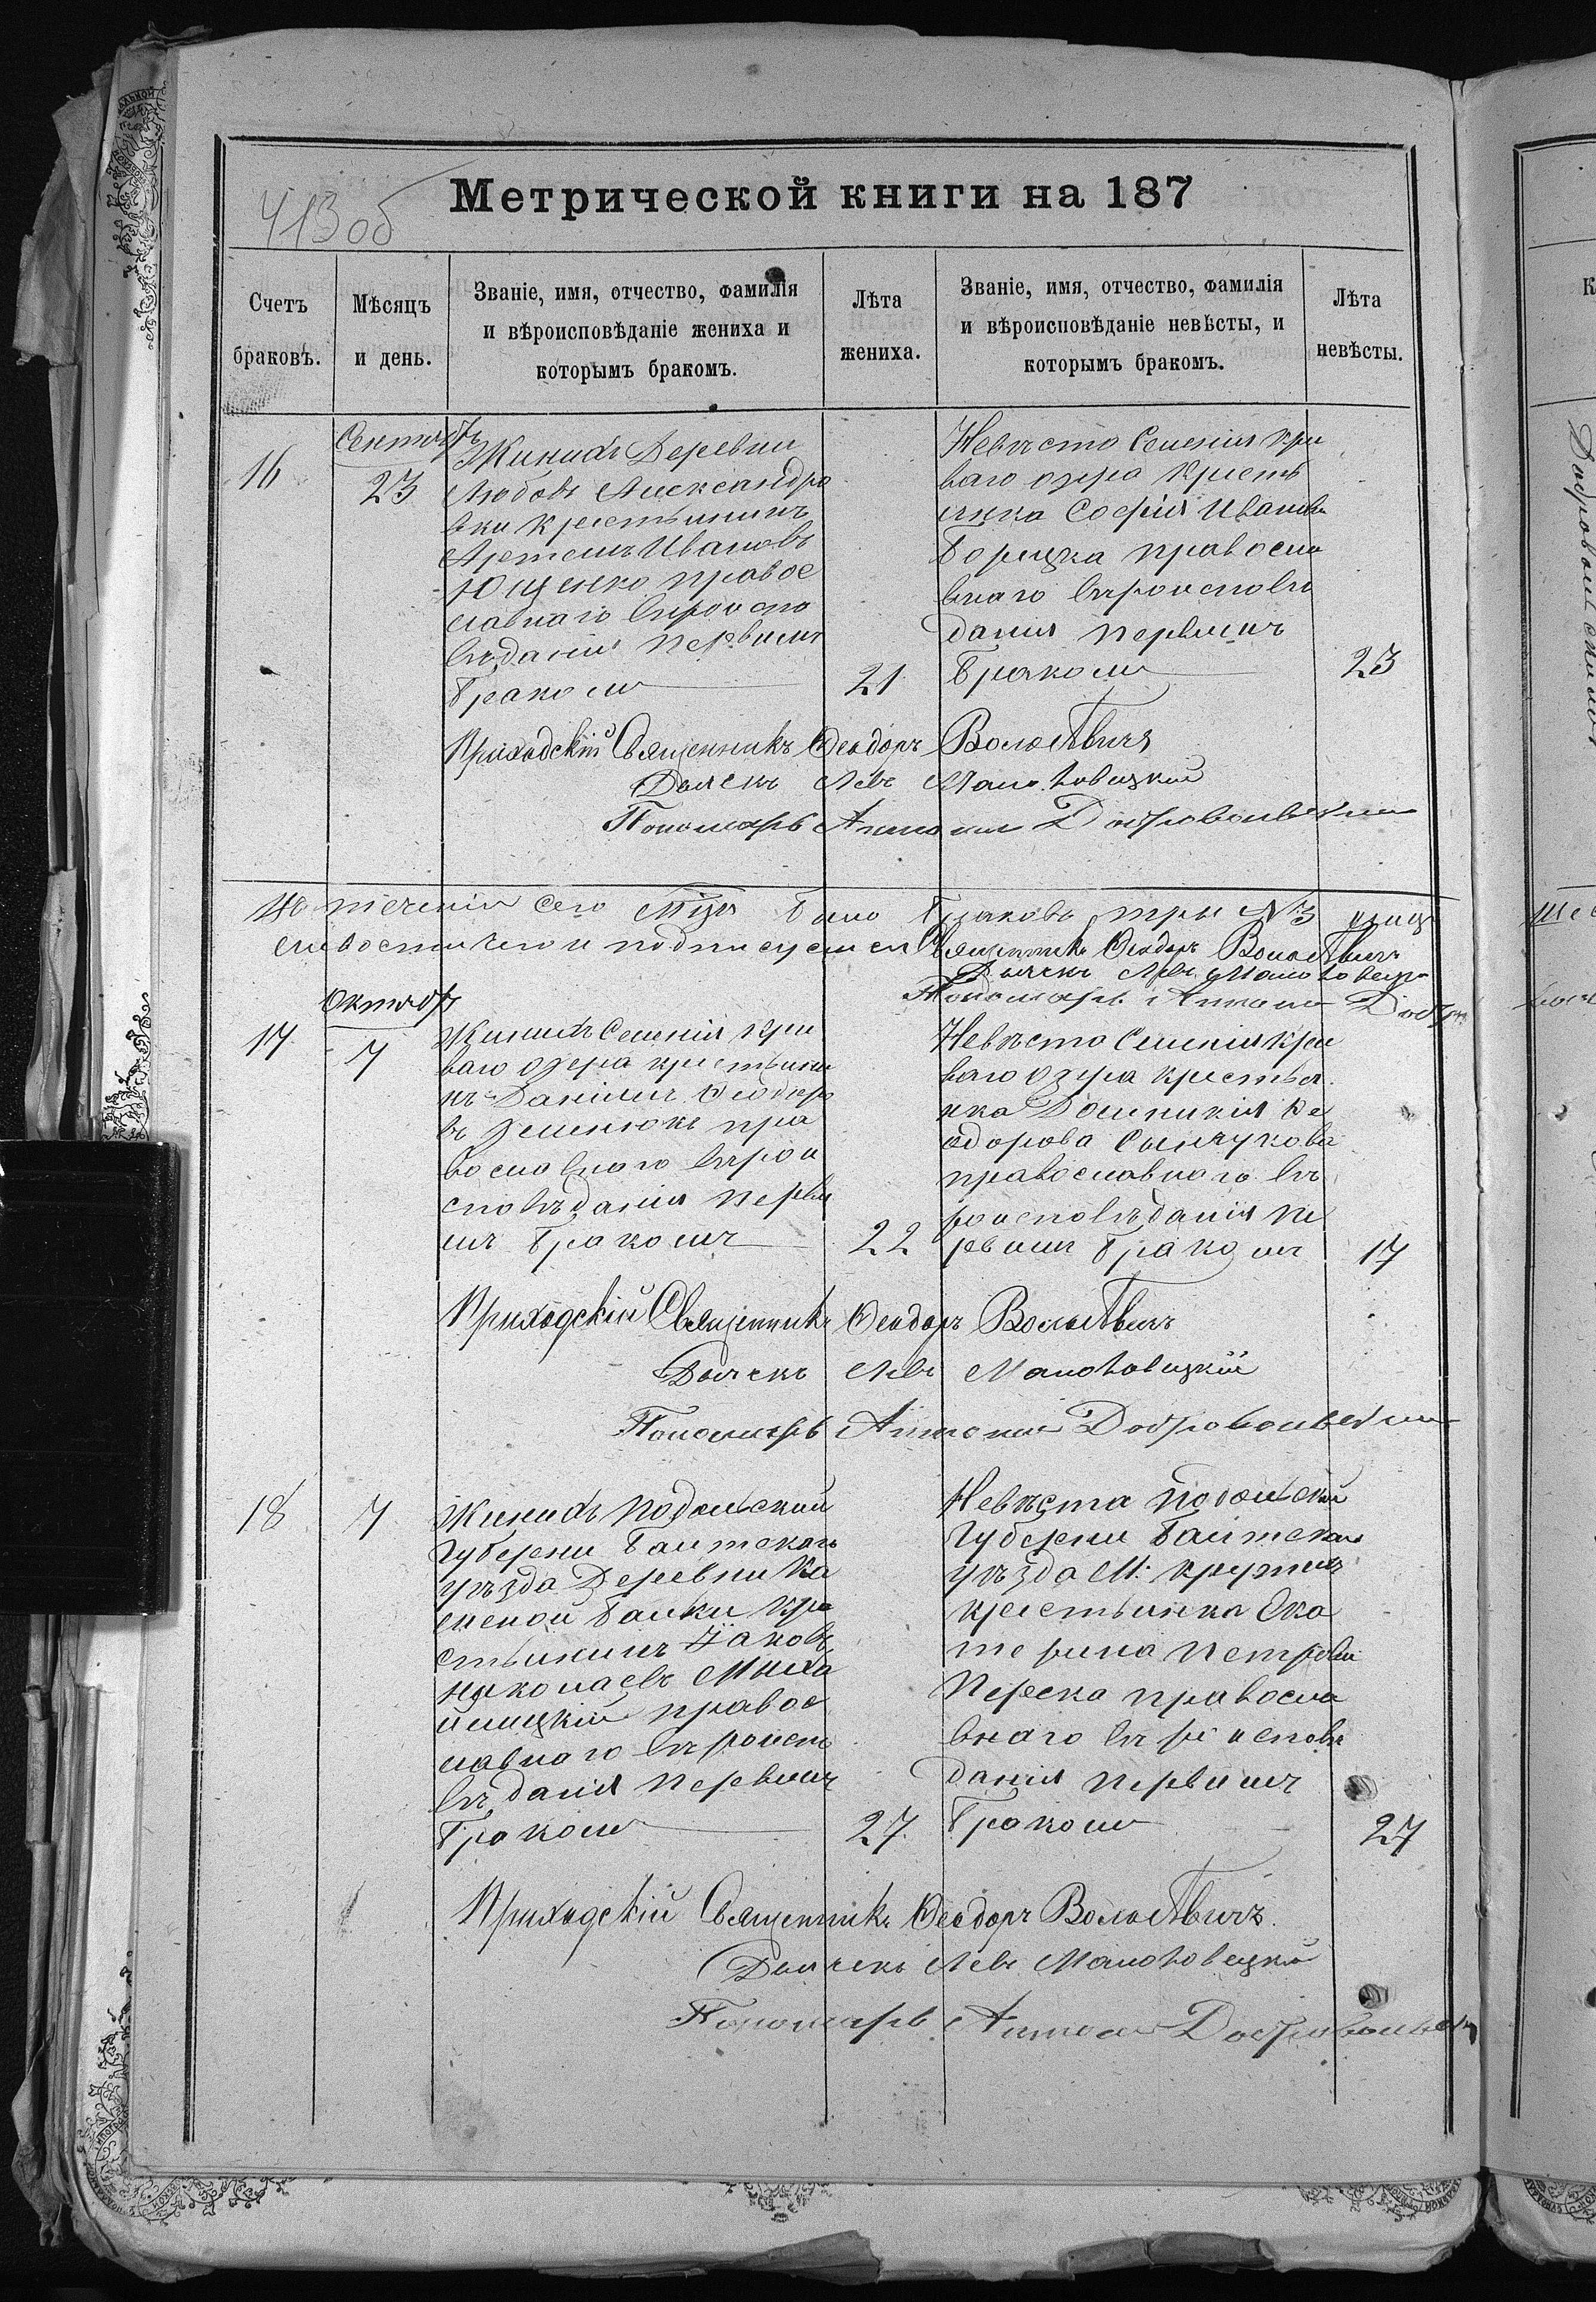 413 об
Метрической книги на 187
Счетъ браковъ.
Мѣсяцъ и день.
Званіе, имя, отчество, фамилія
и вѣроисповѣданіе жениха и
которымъ бракомъ.
Лѣта жениха.
Званіе, имя, отчество, фамилія
и вѣроисповѣданіе невѣсты, и
которымъ бракомъ.
Лѣта невѣсты.
16
Сентябрь
23
Жинихъ Деревни
Любовь Александро
вки крестьянинъ
Артемъ Ивановъ
Ющенко правос
лавнаго вѣроиспо
вѣданія первымъ
бракомъ
21
Невѣста Селенія Кри
ваго озера кресть
янка Софія Иванова
Борецка правосла
внаго вѣроисповѣ
данія первымъ
бракомъ
23
Приходскій Священникъ Ѳеодоръ
Дьячекъ Левъ Малоховицкий
Пономарь Антоній Добровольскій
течении сего Мца было браковъ три №3
подписуемся Священникъ Ѳеодоръ
Дьячекъ Левъ
Пономарь Антоній
Октябрь
17
7
Жинихъ Селенія Кри
ваго озера крестьяни
нъ Даніилъ Ѳеодоро
въ Земенюкъ пра
вославнаго вѣрои
сповѣданія первы
мъ бракомъ
22
Невѣста Селенія Кри
ваго озера крестья
нка Домникія Ѳе
одорова Сымчукова
православнаго вѣ
роисповѣданія пе
рвымъ бракомъ
17
Приходскій Священникъ Ѳеодоръ
Дьячекъ Левъ Малоховицкій
Пономарь Антоній Добровольскій
18
7
Жинихъ Подольский
Губерени Балтскаго
уѣзда Деревни Ка
меной Балки кре
стьянинъ Іаковъ
Николаевъ Миха
йлицкій правос
лавнаго вѣроиспо
вѣданія первымъ
бракомъ
27
Невѣста Подольской
Губерени Балтскаго
уѣзда М: Крутыхъ
крестьянка Ека
терина Петрова
Переска правосла
внаго вѣроисповѣ
данія первымъ
бракомъ
27
Приходскій Священникъ Ѳеодоръ
Дьячекъ Левъ Малоховецкій
Пономарь Антоній Добровольскій